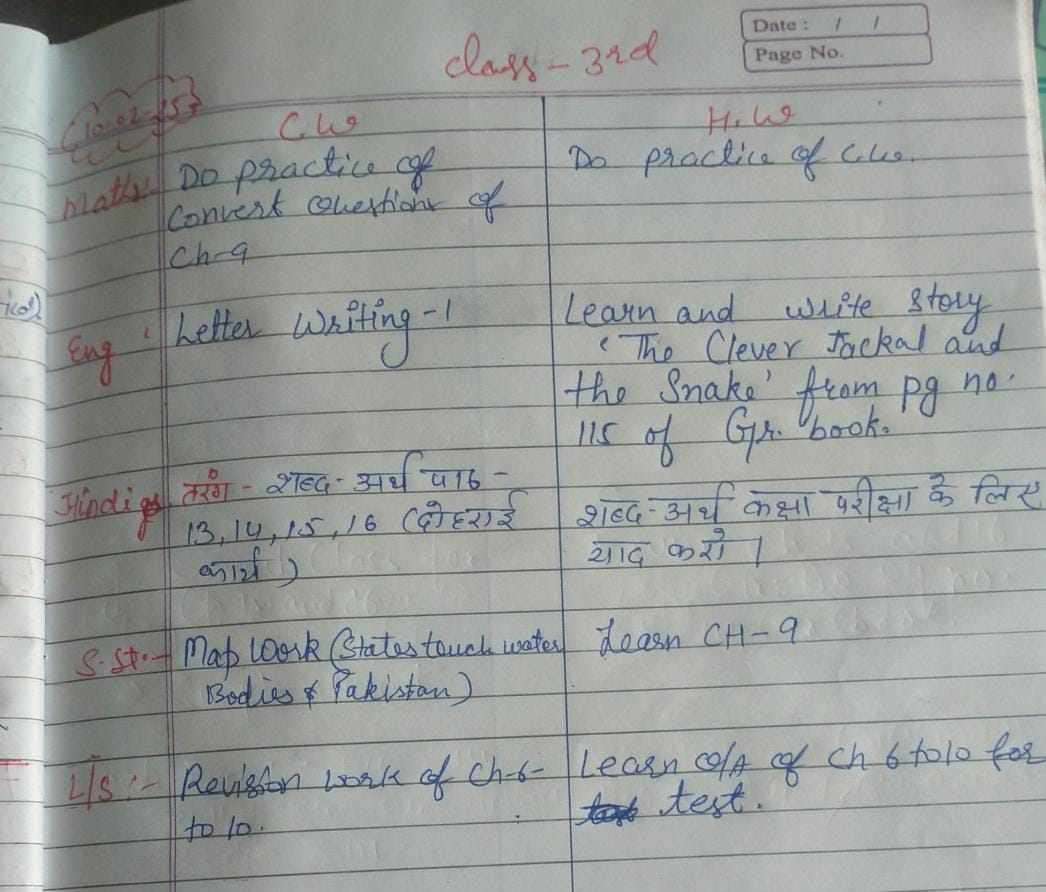 Date : / /
Page No.
Class - 3rd
10-02-25
C.W
H.W
Maths
Do practice of
Convert Questions of
Ch-9
Do practice of C.W.
Eng
Letter Writing -1
Learn and write Story
'The Clever Jackal and
the Snake' from pg no.
115 of Gr. book.
Hindi
तरंग - शब्द-अर्थ पाठ -
13, 14, 15, 16 (दोहराई
कार्य)
शब्द-अर्थ कक्षा परीक्षा के लिए
याद करो ।
S.St. -
Map Work (States touch water
Bodies & Pakistan)
Learn CH-9
L/S :-
Revision work of Ch-6-
to 10.
Learn Q/A of Ch 6 to 10 for
test.